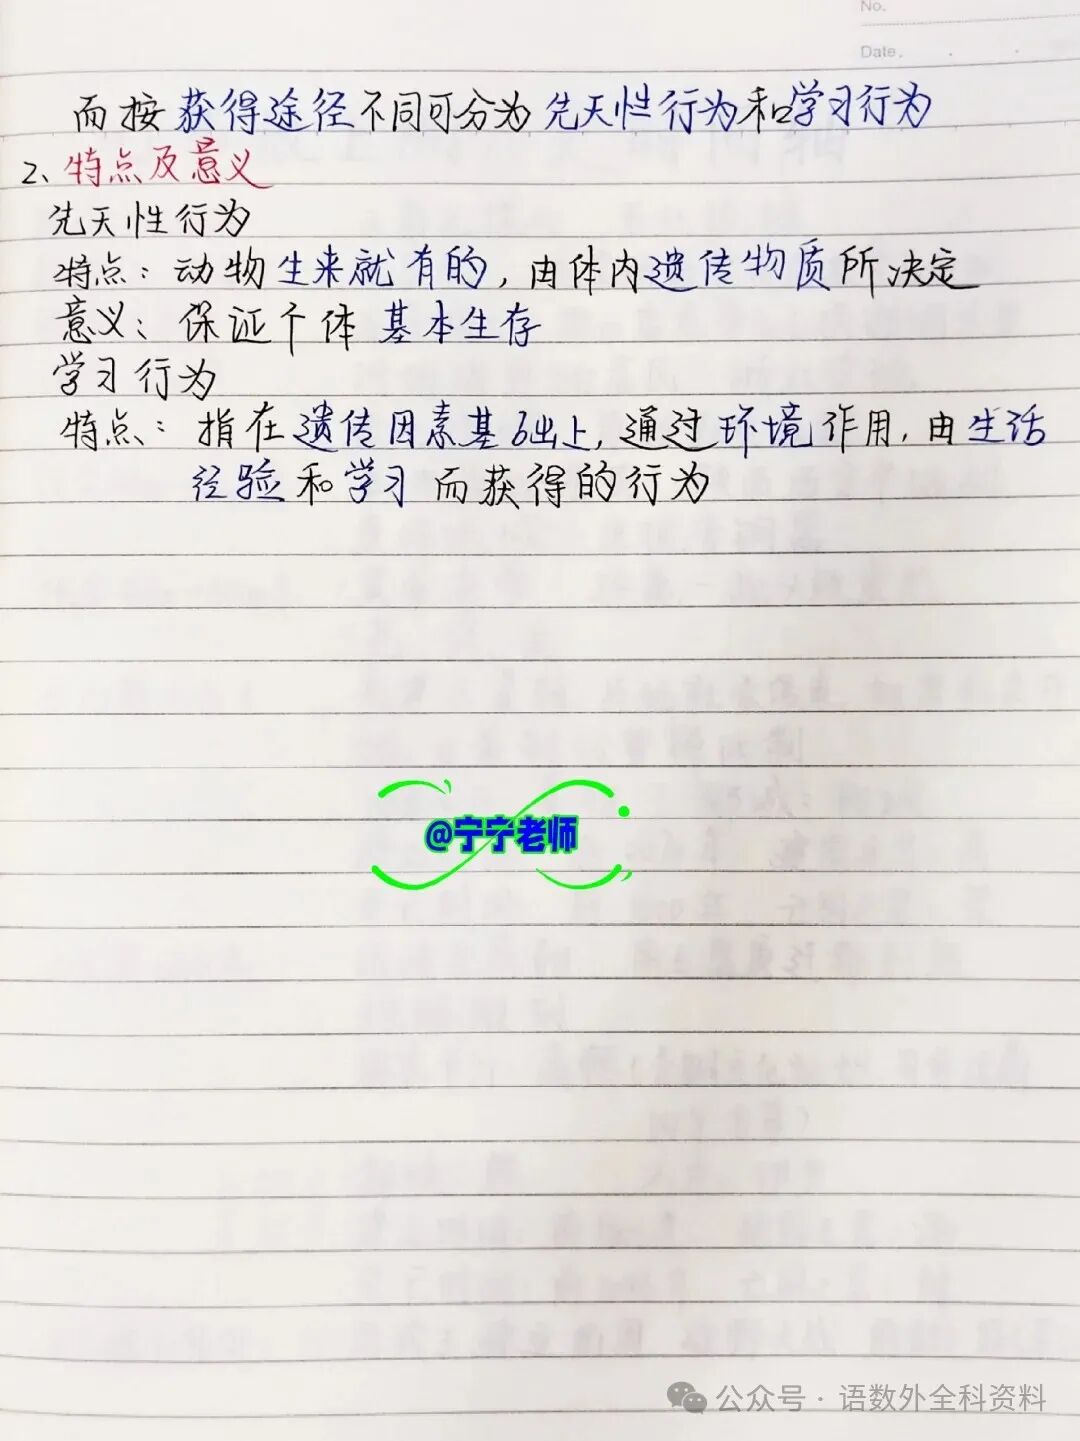 No.
Date.
而按获得途径不同可分为先天性行为和学习行为
2、特点及意义
先天性行为
特点：动物生来就有的，由体内遗传物质所决定
意义：保证个体基本生存
学习行为
特点：指在遗传因素基础上，通过环境作用，由生活
经验和学习而获得的行为
@宁宁老师
公众号·语数外全科资料